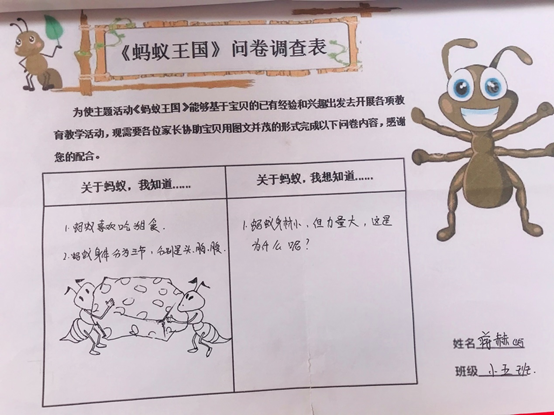 《蚂蚁王国》问卷调查表
为使主题活动《蚂蚁王国》能够基于宝贝的已有经验和兴趣出发去开展各项教
育教学活动，现需要各位家长协助宝贝用图文并茂的形式完成以下问卷内容，感谢
您的配合。
关于蚂蚁，我知道......
1.蚂蚁喜欢吃甜食.
2.蚂蚁身体分为三节，分别是头.胸.腹.
关于蚂蚁，我想知道......
1.蚂蚁身材小，但力量大，这是
为什么呢？
姓名 蒋赫
班级 小五班.